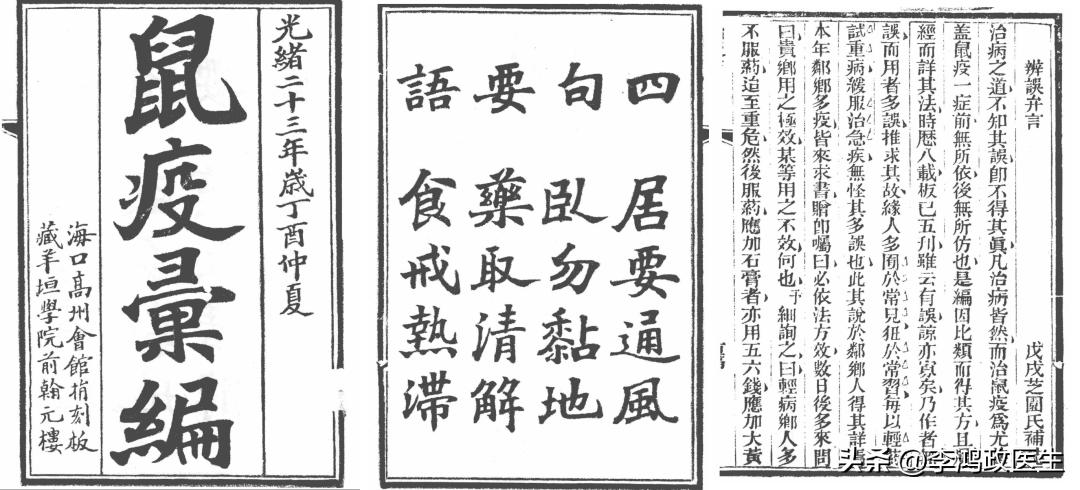 光緒二十三年歲丁酉仲夏
鼠疫彙編
海口高州會館捐刻板
藏羊垣學院前翰元樓
四 居要通風
句 臥勿黏地
要 藥取清解
語 食戒熱滯
辨誤弁言 戊戌芝園氏補
治病之道不知其誤卽不得其眞凡治病皆然而治鼠疫爲尤
蓋鼠疫一症前無所依後無所仿也是編因比類而得其方且
經而詳其法時歷八載板已五刋雖云有誤諒亦寡矣乃作者
誤而用者多誤推求其故緣人多囿於常見狃於常習每以輕
試重病緩服治急疾無怪其多誤也此其說於鄰鄉人得其詳
本年鄰鄉多疫皆來求書贈卽囑曰必依法方效數日後多來問
曰貴鄉用之極效某等用之不效何也予細詢之曰輕病鄉人多
不服葯迨至重危然後服葯應加石膏者亦用五六錢應加大黃
头条 @李鸿政医生